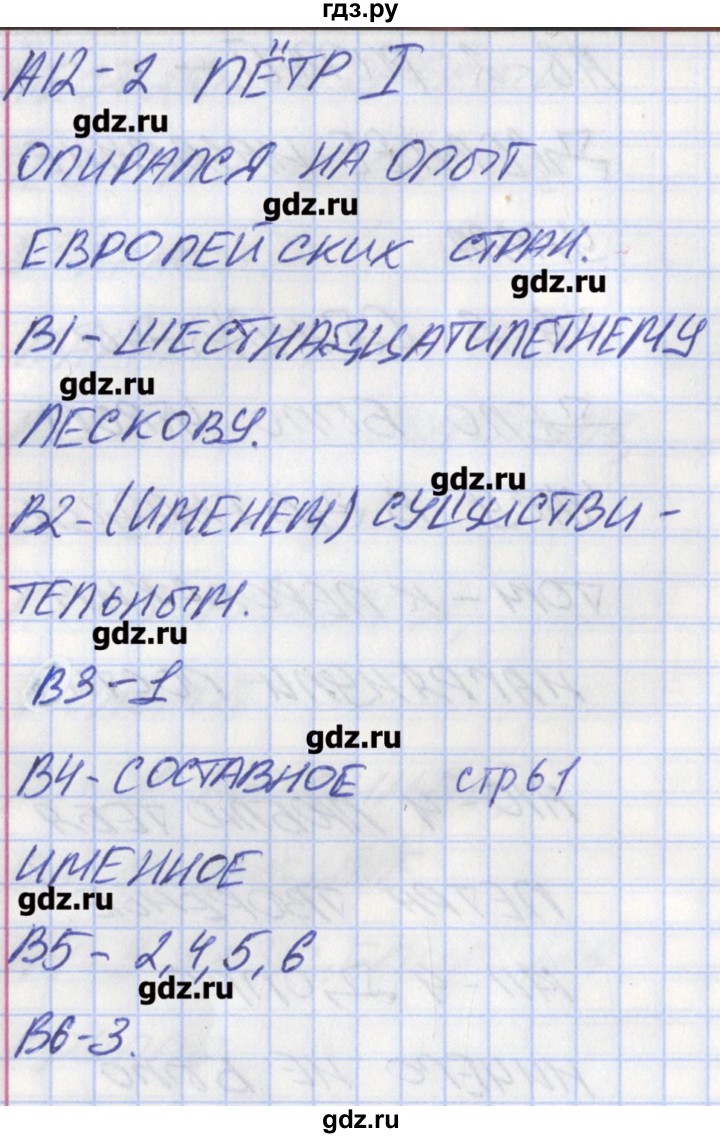 гдз.ру
А12-2 ПЁТР I
gdz.ru
ОПИРАЛСЯ НА ОПЫТ
gdz.ru
ЕВРОПЕЙСКИХ СТРАН.
gdz.ru
В1-ШЕСТНАДЦАТИЛЕТНЕМУ
gdz.ru
ПЕСКОВУ.
gdz.ru
В2-(ИМЕНЕМ) СУЩИСТВИ-
ТЕЛЬНЫМ.
gdz.ru
В3-1
gdz.ru
В4-СОСТАВНОЕ стр 61
ИМЕННОЕ
gdz.ru
В5- 2,4,5,6
gdz.ru
В6-3.
gdz.ru